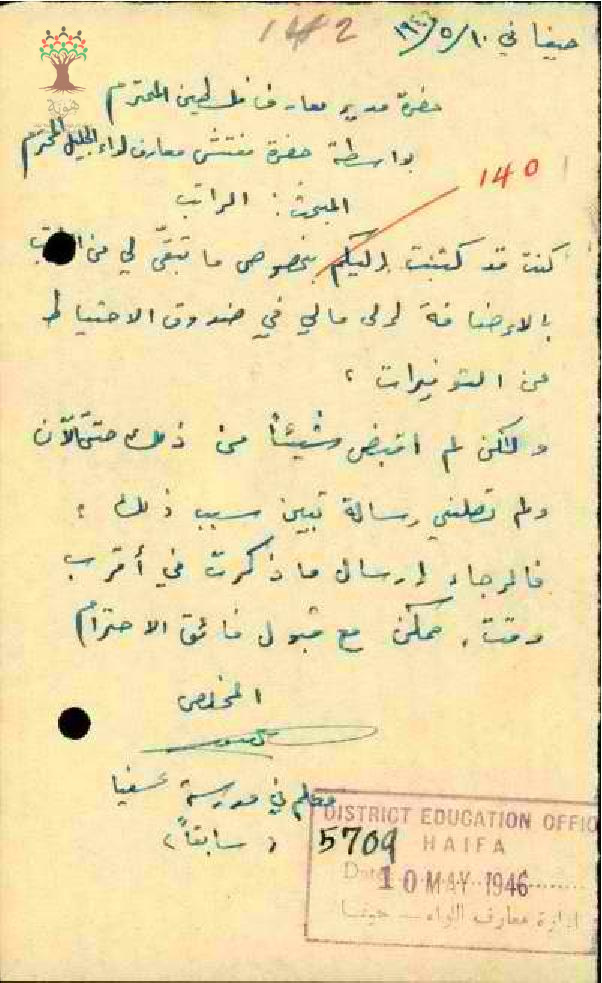 142
حيفا في ١٠/٥/١٩٤٦
حضرة مدير معارف فلسطين المحترم
بواسطة حضرة مفتش معارف لواء الجليل المحترم
140
المبحث: الراتب
كنت قد كتبت إليكم بخصوص ما تبقّى لي من
بالإضافة إلى مالي في صندوق الاحتياط
من التوفيرات ؛
ولكن لم اقبض شيئاً من ذلك حتى الآن
ولم تصلني رسالة تبين سبب ذلك ؛
فالرجاء إرسال ما ذكرت في أقرب
وقت ممكن مع قبول فائق الاحترام
المخلص
معلم في مدرسة عسفيا
(سابقاً)
DISTRICT EDUCATION OFFIC
5709 HAIFA
Date 10 MAY 1946
ادارة معارف اللواء - حيفا
هوية